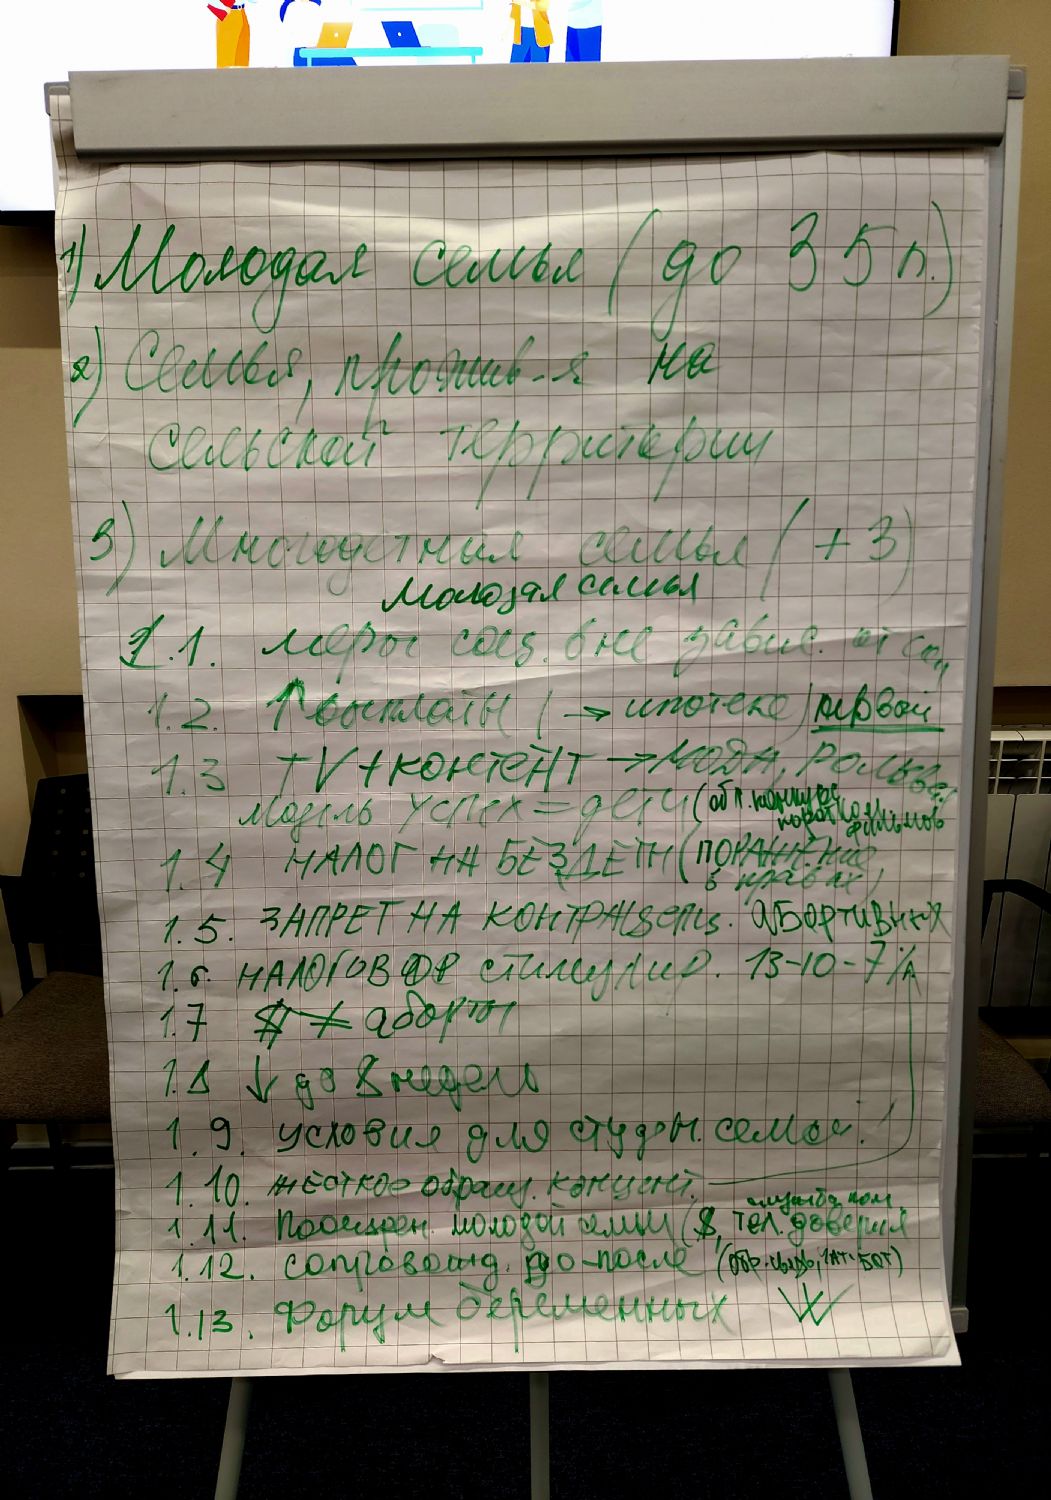 1) Молодая семья (до 35 л.)
2) Семья, прожив-я на
сельской территории
3) Многодетная семья (+3)
Молодая семья
1.1. меры соц. вне завис. от
1.2. ↑ выплаты (→ ипотека) первой
1.3 TV+контент → мода,
модель успех = дети (
фильмов
1.4 НАЛОГ НА БЕЗДЕТН (ПОРАЖЕНИЕ
в правах)
1.5. ЗАПРЕТ НА КОНТРАЦЕПЦ. абортивных
1.6. НАЛОГОВОЕ стимулир. 13-10-7%
1.7 $ ≠ аборты
1.8 ↓ до 8 недель
1.9. условия для студ. семей.
1.10. жёсткое
служба пом
1.11. Поощрен. молодой семьи ($, тел. доверия
1.12. сопровожд. до-после (
1.13. Форум беременных